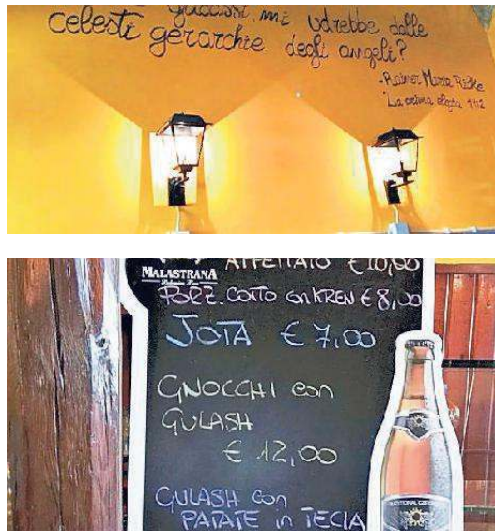 gridassi, mi udrebbe dalle
celesti gerarchie degli angeli?
- Rainer Maria Rilke
La prima elegia 1912
AFFETTATO €10,00
MALASTRANA
PORZ. COTTO CON KREN €8,00
JOTA € 7,00
GNOCCHI con
GULASH
€ 12,00
GULASH con
PATATE in TECIA